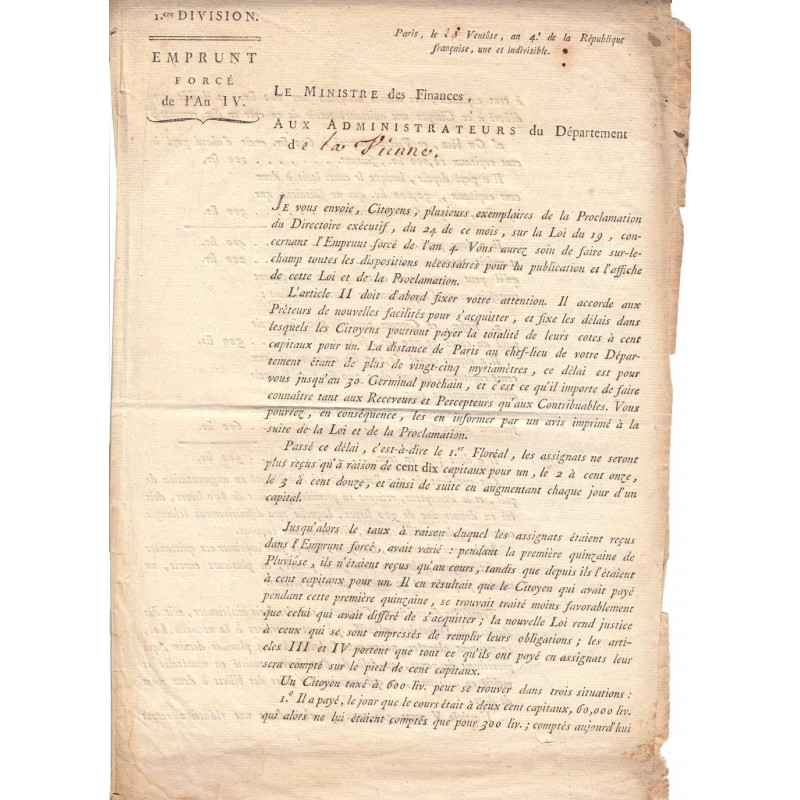 1.ere DIVISION.
EMPRUNT
FORCÉ
de l'An IV.
Paris, le 28 Ventôse, an 4.e de la République
française, une et indivisible.
LE MINISTRE des Finances,
AUX ADMINISTRATEURS du Département
de la Vienne.
JE vous envoie, Citoyens, plusieurs exemplaires de la Proclamation
du Directoire exécutif, du 24 de ce mois, sur la Loi du 19, con-
cernant l'Emprunt forcé de l'an 4. Vous aurez soin de faire sur-le-
champ toutes les dispositions nécessaires pour la publication et l'affiche
de cette Loi et de la Proclamation.
L'article II doit d'abord fixer votre attention. Il accorde aux
Prêteurs de nouvelles facilités pour s'acquitter, et fixe les délais dans
lesquels les Citoyens pourront payer la totalité de leurs cotes à cent
capitaux pour un. La distance de Paris au chef-lieu de votre Dépar-
tement étant de plus de vingt-cinq myriamètres, ce délai est pour
vous jusqu'au 30 Germinal prochain, et c'est ce qu'il importe de faire
connaître tant aux Receveurs et Percepteurs qu'aux Contribuables. Vous
pourrez, en conséquence, les en informer par un avis imprimé à la
suite de la Loi et de la Proclamation.
Passé ce délai, c'est-à-dire le 1.er Floréal, les assignats ne seront
plus reçus qu'à raison de cent dix capitaux pour un, le 2 à cent onze,
le 3 à cent douze, et ainsi de suite en augmentant chaque jour d'un
capital.
Jusqu'alors le taux à raison duquel les assignats étaient reçus
dans l'Emprunt forcé, avait varié : pendant la première quinzaine de
Pluviôse, ils n'étaient reçus qu'au cours, tandis que depuis ils l'étaient
à cent capitaux pour un. Il en résultait que le Citoyen qui avait payé
pendant cette première quinzaine, se trouvait traité moins favorablement
que celui qui avait différé de s'acquitter ; la nouvelle Loi rend justice
à ceux qui se sont empressés de remplir leurs obligations ; les arti-
cles III et IV portent que tout ce qu'ils ont payé en assignats leur
sera compté sur le pied de cent capitaux.
Un Citoyen taxé à 600 liv. peut se trouver dans trois situations :
1.º Il a payé, le jour que le cours était à deux cent capitaux, 60,000 liv.
qui alors ne lui étaient comptés que pour 300 liv. ; comptés aujourd'hui